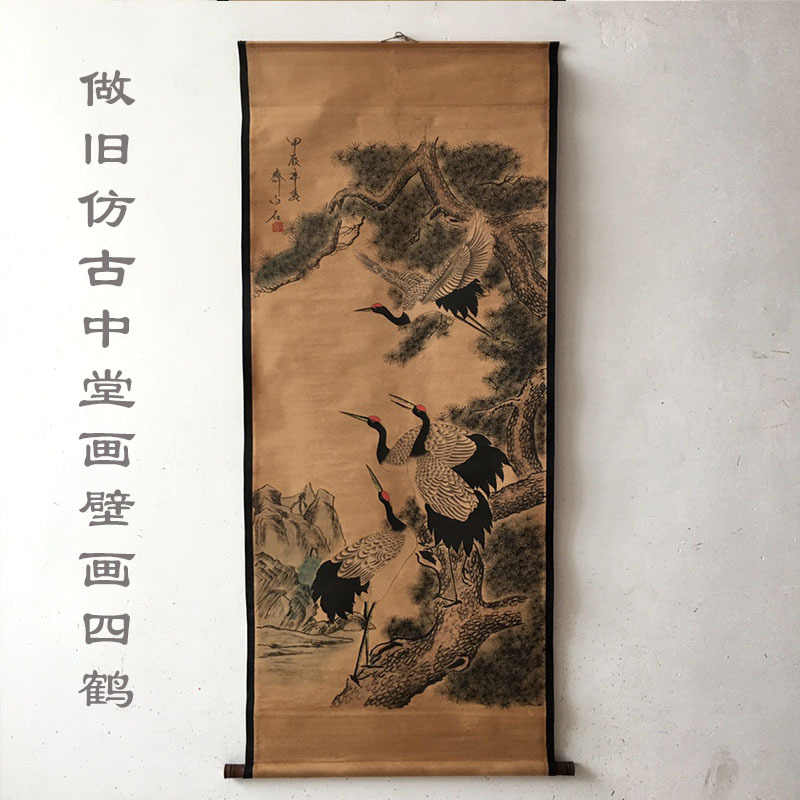 做旧仿古中堂画壁画四鹤
甲辰年春
齐白石